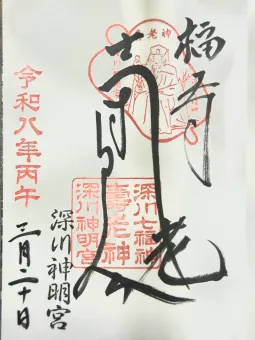 福
老
深川七福神
壽老神
深川神明宮
深川神明宮
令和八年丙午
三月二十日